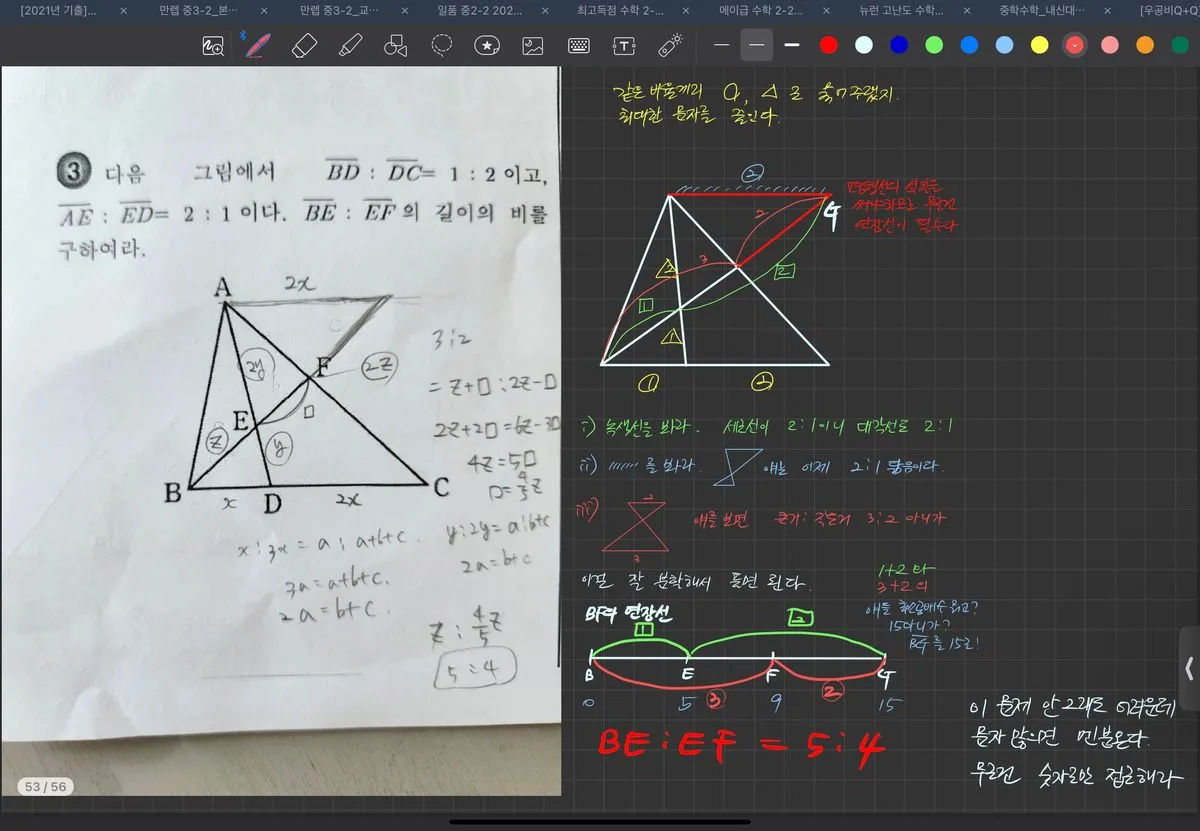 [2021년 기출]...
만렙 중3-2_본...
만렙 중3-2_교...
일품 중2-2 202...
최고득점 수학 2-...
에이급 수학 2-2...
뉴런 고난도 수학...
중학수학_내신대...
[우공비Q+Q
3 다음 그림에서 BD : DC= 1 : 2 이고,
AE : ED= 2 : 1 이다. BE : EF 의 길이의 비를
구하여라.
A
2x
2y
F
2z
E
□
z
y
B
x
D
2x
C
3:2
= z+□ : 2z-□
2z+2□=6z-3□
4z=5□
□=4/5z
x:3x = a : a+b+c.
3a=a+b+c.
2a=b+c.
y:2y=a:b+c
2a=b+c
z : 4/5z
5:4
53 / 56
같은 비율끼리 O, △로
최대한 문자를 줄인다.
②
G
2
3
2
2
1
1
①
②
i) 녹색선을 봐라. 세로선이 2:1이니 대각선도 2:1
ii) 를 봐라. 얘는 이제 2:1 닮음이다.
iii)
2
3
얘를 보면 큰거:작은거 3:2 아니가
이걸 잘 분학해서 풀면 된다.
1+2 와
3+2 의
얘들 최소공배수 뭐고?
15아니가?
BG를 15로!
BF의 연장선
1
2
B
E
F
G
③
②
0
5
9
15
BE:EF = 5:4
이 문제 안그래도 어려운데
문자 많으면 멘붕온다.
무조건 숫자로만 접근해라